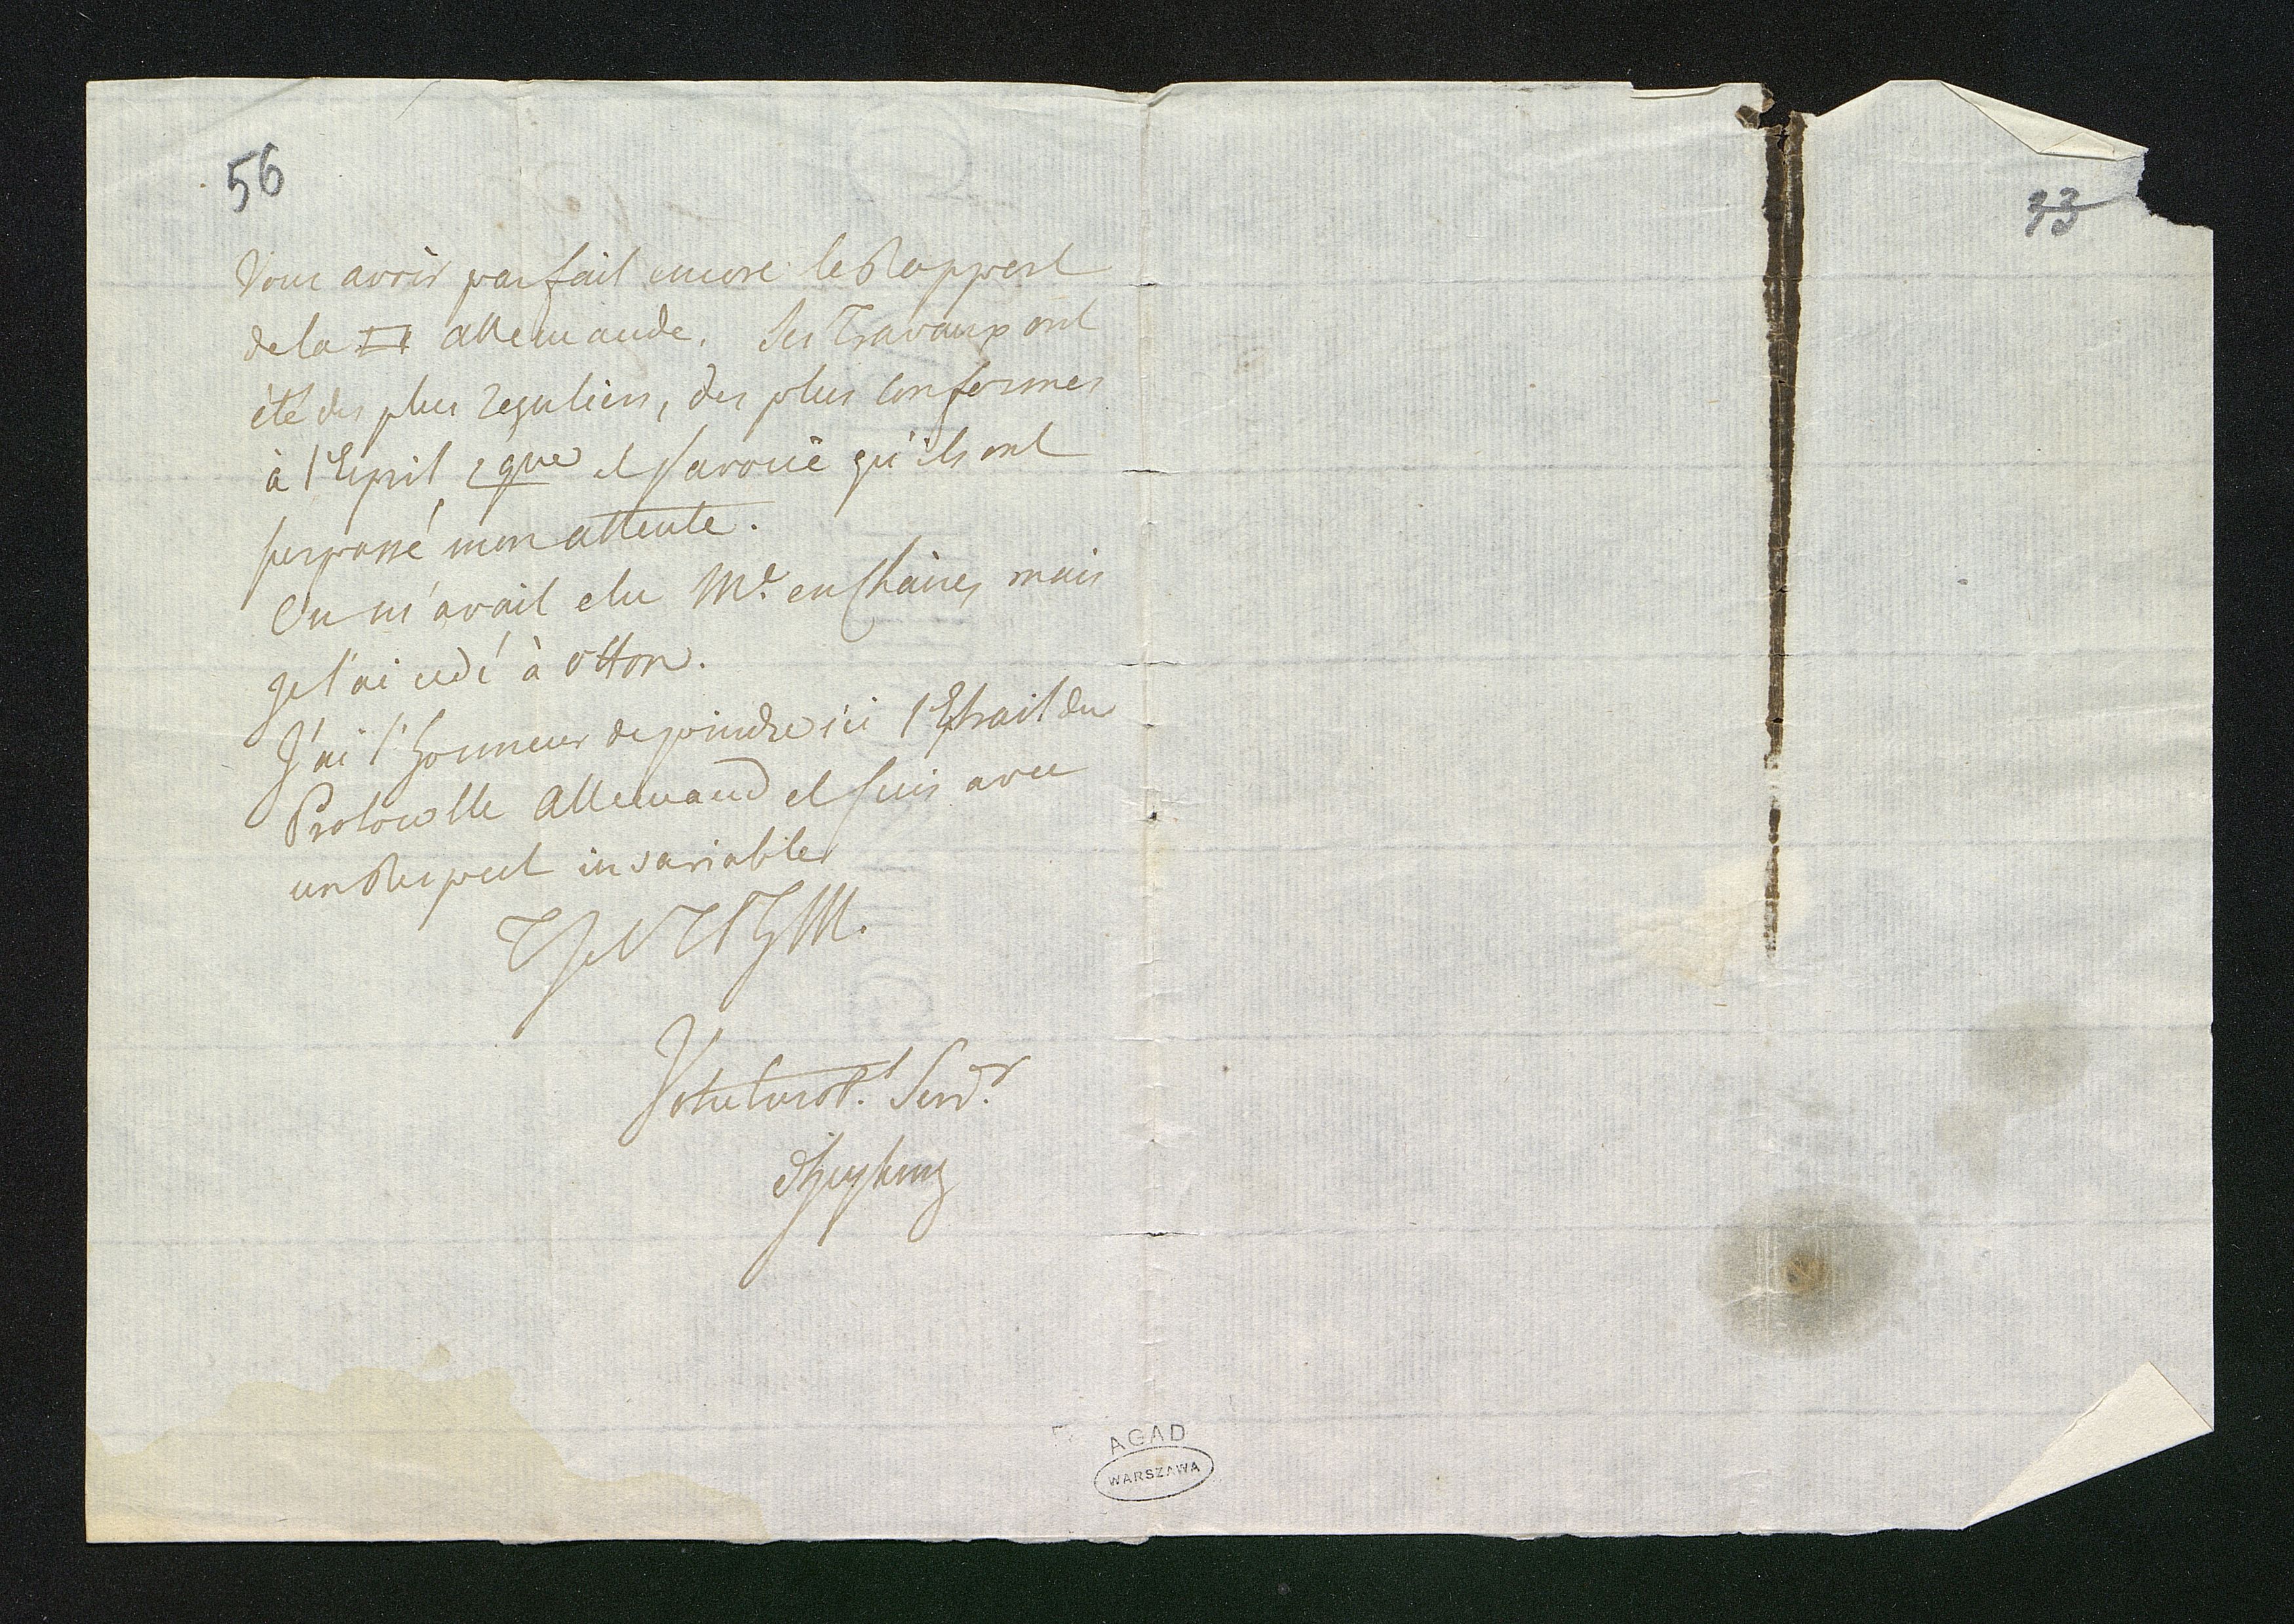 56
33
Vous avoir pas fait encore le Rapport
de la □ allemande. Ses Travaux ont
été des plus reguliers, des plus conformes
à l'Esprit, et j'avoue qu'ils ont
surpassé mon attente.
On m'avait elu Me. en Chaires mais
je l'ai cedé à Otton.
J'ai l'honneur de joindre ici l'Extrait du
Protocolle Allemand et suis avec
un Respect invariable
Votre Serv.r
Heyking
AGAD
WARSZAWA